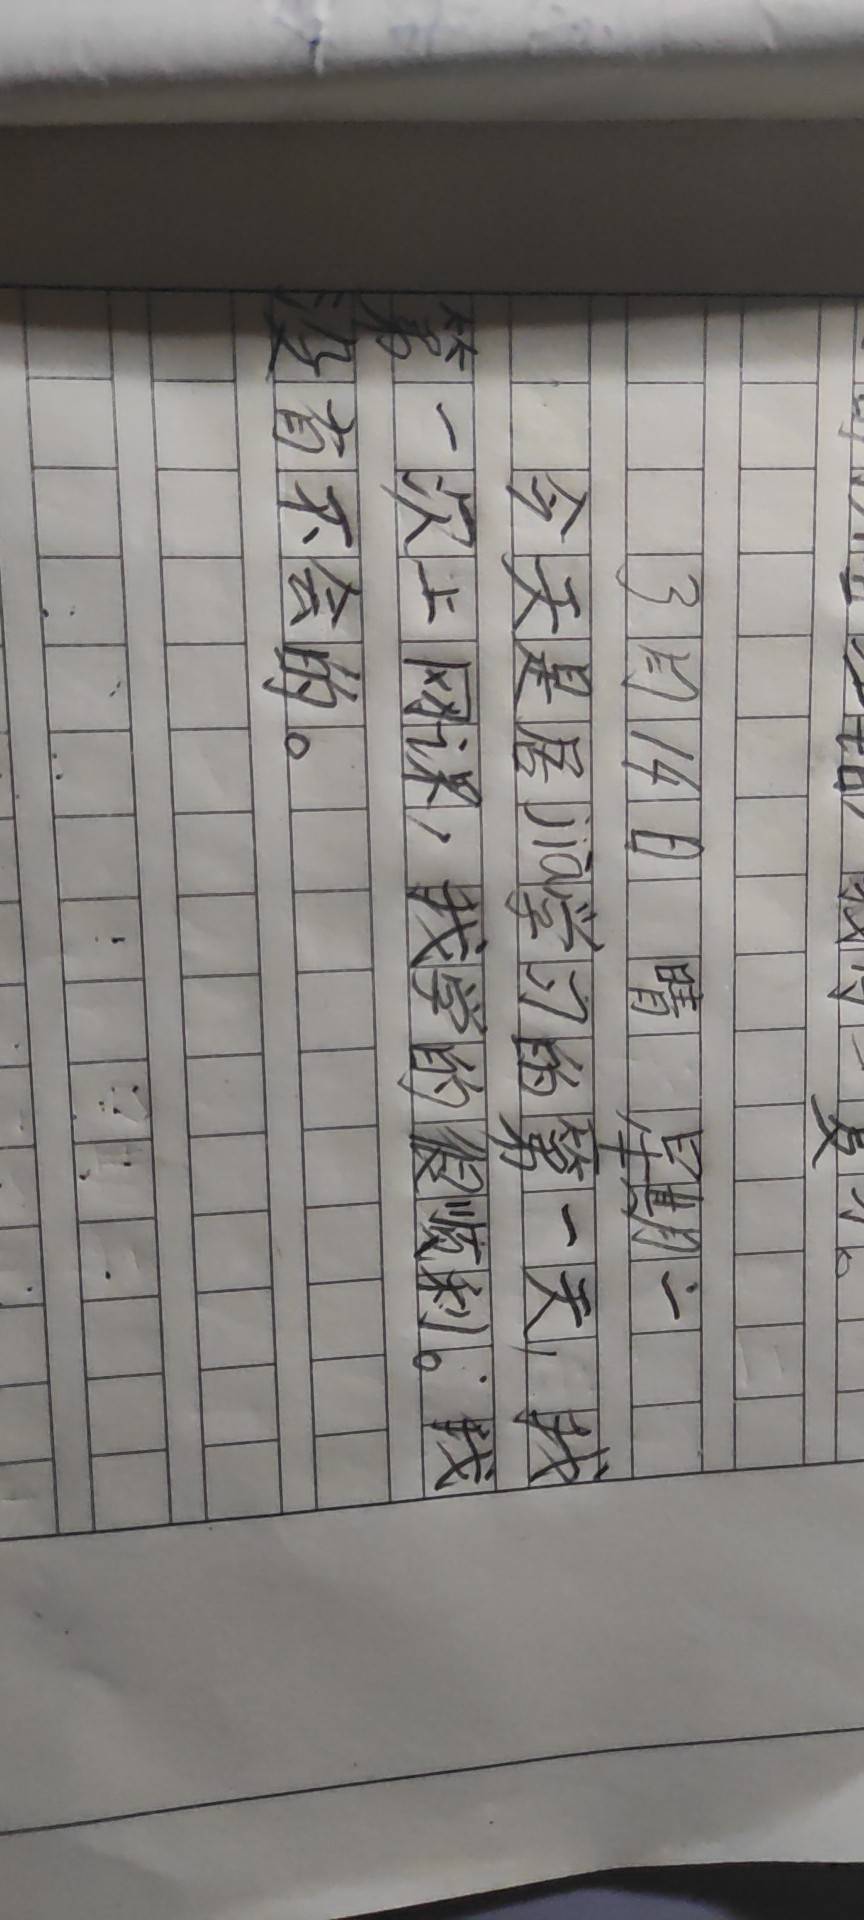 3月14日 晴 星期一
今天是居jiā学习的第一天，我
第一次上网课，我学的很顺利。我
没有不会的。